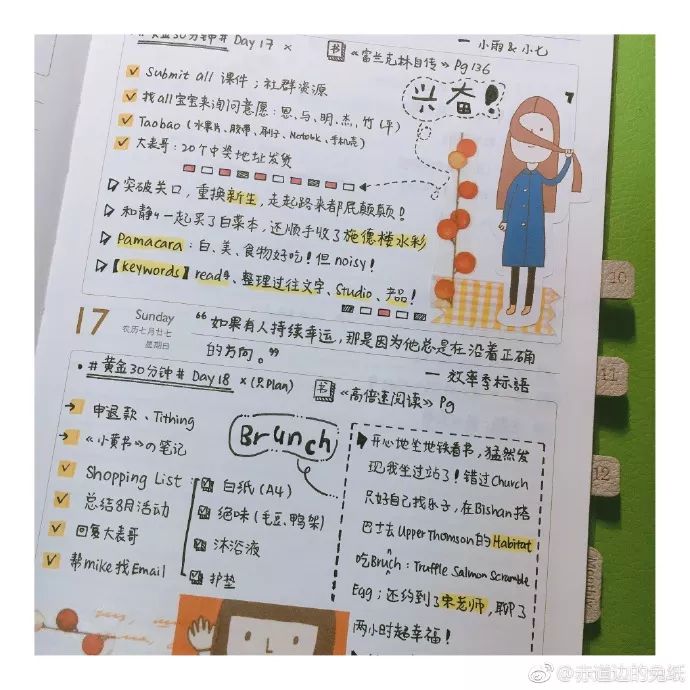 #黄金30分钟# Day 17 ×
书 《富兰克林自传》 Pg 136
— 小雨 & 小七
Submit all 课件；社群资源
找all宝宝来询问意愿：思、与、明、杰、竹（平）
Taobao（水果片、胶带、刷子、Notebk、手机壳）
大表哥：20个中奖地址发货
兴奋！
7
突破关口，重换新生，走起路来都屁颠颠！
和静静一起买了白菜本，还顺手收了施德楼水彩
Pamacara：白、美、食物好吃！但noisy！
【keywords】read书、整理过往文字、Studio、产品！
17
Sunday
农历七月廿七
星期日
“如果有人持续幸运，那是因为他总是在沿着正确
的方向。”
— 效率手标語
#黄金30分钟# Day 18 ×（只Plan）
书 《高倍速阅读》 Pg
申退款、Tithing
《小黄书》の笔记
Shopping List：
总结8月活动
回复大表哥
帮mike找Email
白纸（A4）
绝味（毛豆、鸭架）
沐浴液
护垫
Brunch
开心地坐地铁看书，猛然发
现我坐过站了！错过Church
只好自己找乐子，在Bishan搭
巴士去Upper Thomson的Habitat
吃Brunch：Truffle Salmon Scramble
Egg；还约到了宋老师，聊了
两小时超幸福！
10
11
12
Month
@赤道边的兔纸